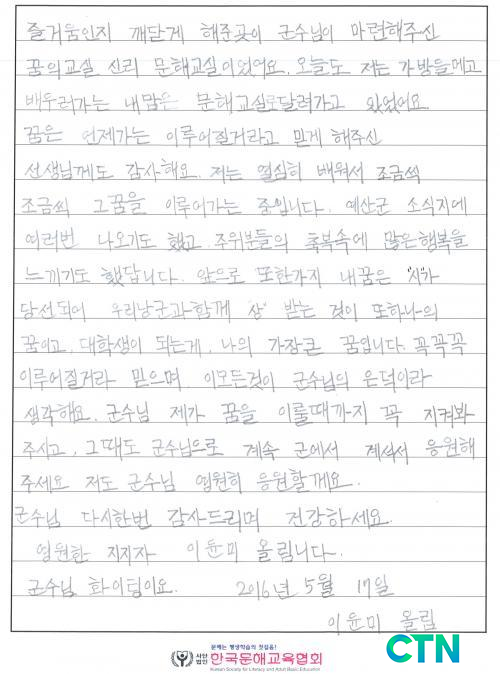 즐거움인지 깨닫게 해준곳이 군수님이 마련해주신
꿈의교실 신리 문해교실이었어요. 오늘도 저는 가방을메고
배우러가는 내맘은 문해교실로달려가고 있었어요
꿈은 언제가는 이루어질거라고 믿게 해주신
선생님께도 감사해요. 저는 열심히 배워서 조금씩
조금씩 그꿈을 이루어가는 중입니다. 예산군 소식지에
여러번 나오기도 했고 주위분들의 축복속에 많은행복을
느끼기도 했답니다. 앞으로 또한가지 내꿈은 "시"가
당선되어 우리낭군과함께 상 받는 것이 또하나의
꿈이고, 대학생이 되는게, 나의 가장큰 꿈입니다. 꼭꼭꼭
이루어질거라 믿으며, 이모든것이 군수님의 은덕이라
생각해요. 군수님 제가 꿈을 이룰때까지 꼭 지켜봐
주시고, 그때도 군수님으로 계속 군에서 계셔서 응원해
주세요 저도 군수님 영원히 응원할께요.
군수님 다시한번 감사드리며 건강하세요.
영원한 지지자 이윤미 올림니다.
군수님 화이팅이요. 2016년 5월 17일
이윤미 올림
문해는 평생학습의 첫걸음!
사단법인 한국문해교육협회
Korean Society for Literacy and Adult Basic Education
CTN